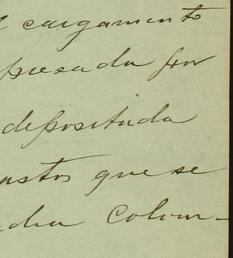 l cargamento
presada por
depositada
astos que se
dha Colom-